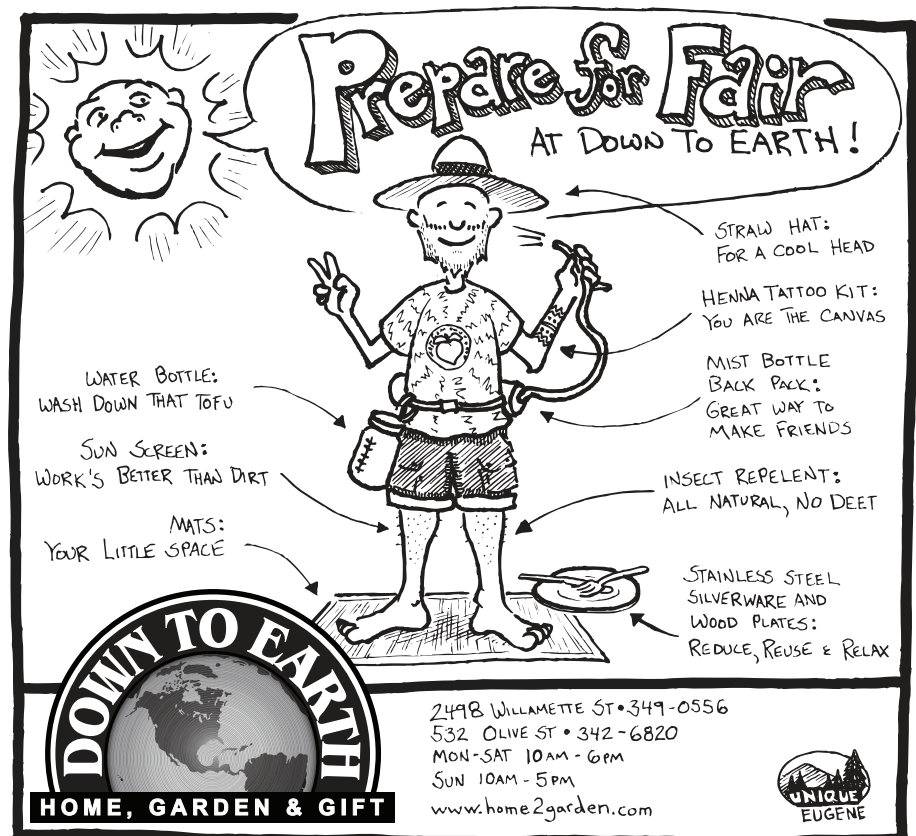 Prepare for Fair
AT DOWN TO EARTH!
STRAW HAT:
FOR A COOL HEAD
HENNA TATTOO KIT:
YOU ARE THE CANVAS
MIST BOTTLE
BACK PACK:
GREAT WAY TO
MAKE FRIENDS
INSECT REPELENT:
ALL NATURAL, NO DEET
STAINLESS STEEL
SILVERWARE AND
WOOD PLATES:
REDUCE, REUSE & RELAX
WATER BOTTLE:
WASH DOWN THAT TOFU
SUN SCREEN:
WORK'S BETTER THAN DIRT
MATS:
YOUR LITTLE SPACE
DOWN TO EARTH
HOME, GARDEN & GIFT
2498 WILLAMETTE ST • 349-0556
532 OLIVE ST • 342-6820
MON-SAT 10AM - 6PM
SUN 10AM - 5PM
www.home2garden.com
UNIQUE
EUGENE